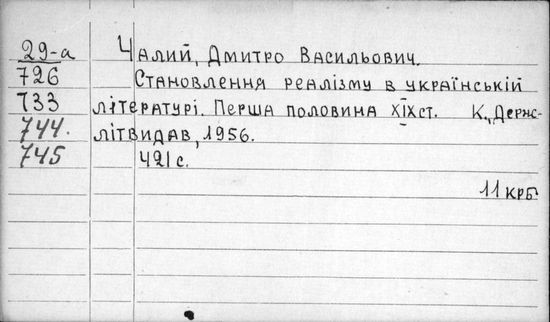 29-а Чалий, Дмитро Васильович.
726 Становлення реалізму в українській
733 літературі. Перша половина XIX ст. К., Держ-
744. літвидав, 1956.
745 421 с.
11 крб